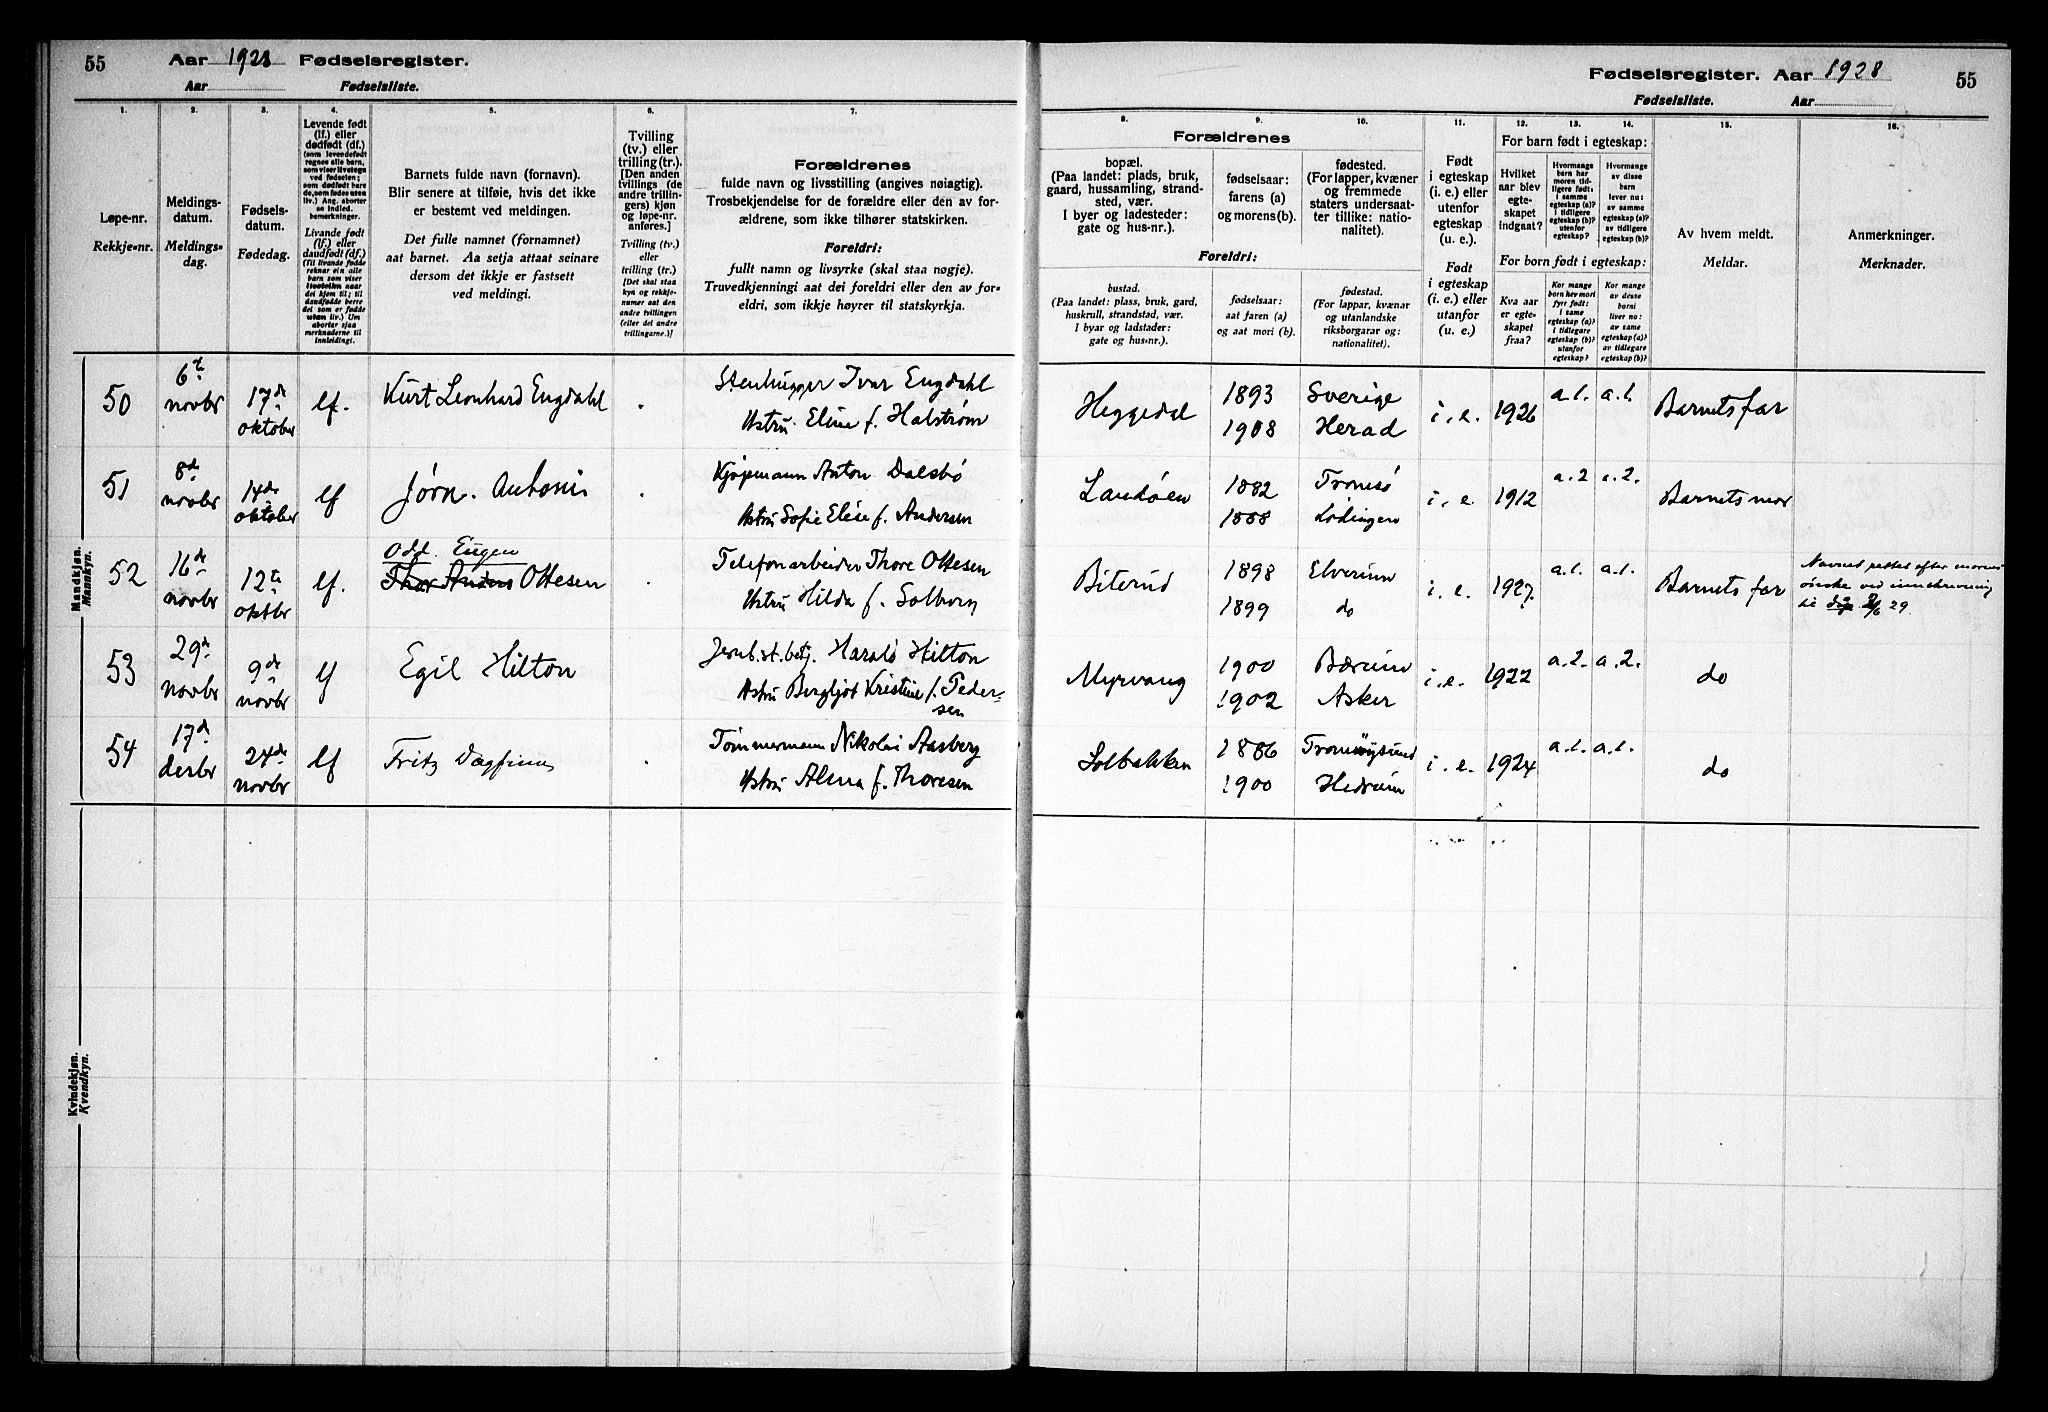 55
Aar 1928 Fødselsregister.
Aar Fødselsliste.
Fødselsregister. Aar 1928
55
Fødselsliste. Aar
1.
2.
3.
4.
5.
6.
7.
8.
9.
10.
11.
12.
13.
14.
15.
16.
Løpe-nr.
Rekkje-nr.
Meldings-
datum.
Meldings-
dag.
Fødsels-
datum.
Fødedag.
Levende født
(lf.) eller
dødfødt (df.)
Livande født
(lf.) eller
daudfødt (df.)
Barnets fulde navn (fornavn).
Blir senere at tilføie, hvis det ikke
er bestemt ved meldingen.
Det fulle namnet (fornamnet)
aat barnet. Aa setja attaat seinare
dersom det ikkje er fastsett
ved meldingi.
Tvilling
(tv.) eller
trilling (tr.).
[Den anden
tvillings (de
andre trillin-
gers) kjøn
og løpe-nr.
anføres.]
Tvilling (tv.)
eller
trilling (tr.)
[Det skal staa
kyn og rekkje-
numer aat den
andre tvillingen
(eller dei andre
trillingarne.)]
Forældrenes
fulde navn og livsstilling (angives nøiagtig).
Trosbekjendelse for de forældre eller den av for-
ældrene, som ikke tilhører statskirken.
Foreldri:
fullt namn og livsyrke (skal staa nøgje).
Truvedkjenningi aat dei foreldri eller den av for-
eldri, som ikkje høyrer til statskyrkja.
Forældrenes
bopæl.
(Paa landet: plads, bruk,
gaard, hussamling, strand-
sted, vær.
I byer og ladesteder:
gate og hus-nr.).
fødselsaar:
farens (a)
og morens (b).
fødested.
(For lapper, kvæner
og fremmede
staters undersaat-
ter tillike: natio-
nalitet).
Foreldri:
bustad.
(Paa landet: plass, bruk, gard,
huskrull, strandstad, vær.
I byar og ladstader:
gate og hus-nr.).
fødselsaar:
aat faren (a)
og aat mori (b).
fødestad.
(For lappar, kvænar
og utanlandske
riksborgarar og:
nationalitet).
Født
i egteskap
(i. e.) eller
utenfor
egteskap
(u. e.).
Født
i egteskap
(i. e.) eller
utanfor
egteskap
(u. e.)
For barn født i egteskap:
Hvilket
aar blev
egte-
skapet
indgaat?
Hvormange
barn har
moren tid-
ligere født:
i samme
egteskap (a)?
i tidligere
egteskap (b)?
utenfor
egteskap?
Hvormange
av disse
barn
lever nu:
av samme
egteskap (a)?
av tidligere
egteskap (b)?
For born født i egteskap:
Kva aar
er egte-
skapet
fraa?
Kor mange
born hev mori
fyrr født:
i same
egteskap (a)?
i tidlegare
egteskap (b)?
utanfor
egteskap?
Kor mange
av desse
borni
liver no:
av same
egteskap (a)?
av tidlegare
egteskap (b)?
Av hvem meldt.
Meldar.
Anmerkninger.
Merknader.
Mandkjøn.
Mannkyn.
50
6te
novbr
17de
oktober
lf.
Kurt Leonhard Engdahl
Stenhugger Ivar Engdahl
Hstru Eline f. Halstrøm
Heggedal
1893
1908
Sverige
Herad
i. e.
1926
a.1.
a.1.
Barnets far
51
8de
novbr
14de
oktober
lf
Jørn. Antoni
Kjøpmann Anton Dalsbø
Hstru Sofie Elise f. Andersen
Landøen
1882
1888
Tromsø
Lødingen
i. e.
1912
a.2
a.2.
Barnets mor
52
16de
novbr
12te
oktbr
lf.
Odd. Eugen
Thor Anders Ottesen
Telefonarbeider Thore Ottesen
Hstru Hilda f. Solberg
Biterud
1898
1899
Elverum
do
i. e.
1927.
a.1.
a.1.
Barnets far
Navnet rettet efter morens
ønske ved innskrivning
til dåp 2/6 29.
53
29de
novbr
9de
novbr
lf
Egil Hilton
Jernb.st.betj. Harald Hilton
Hstru Bergljot Kristine f. Peder-
sen
Myrvang
1900
1902
Bærum
Asker
i. e.
1922
a.2.
a.2.
do
54
17de
desbr
24de
novbr
lf
Fritz Dagfinn
Tømmermann Nikolai Aasberg
Hstru Alma f. Thoresen
Solbakken
1886
1900
Tromøysund
Hedrum
i. e.
1924
a.1.
a.1.
do
Kvindekjøn.
Kvendkyn.